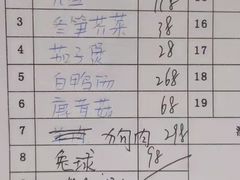 118
15
3 冬笋芥菜 38 16
4 茄子煲 28 17
5 白鸭汤 268 18
6 鹿茸菇 68 19
7 肉 298
8 兔球 98